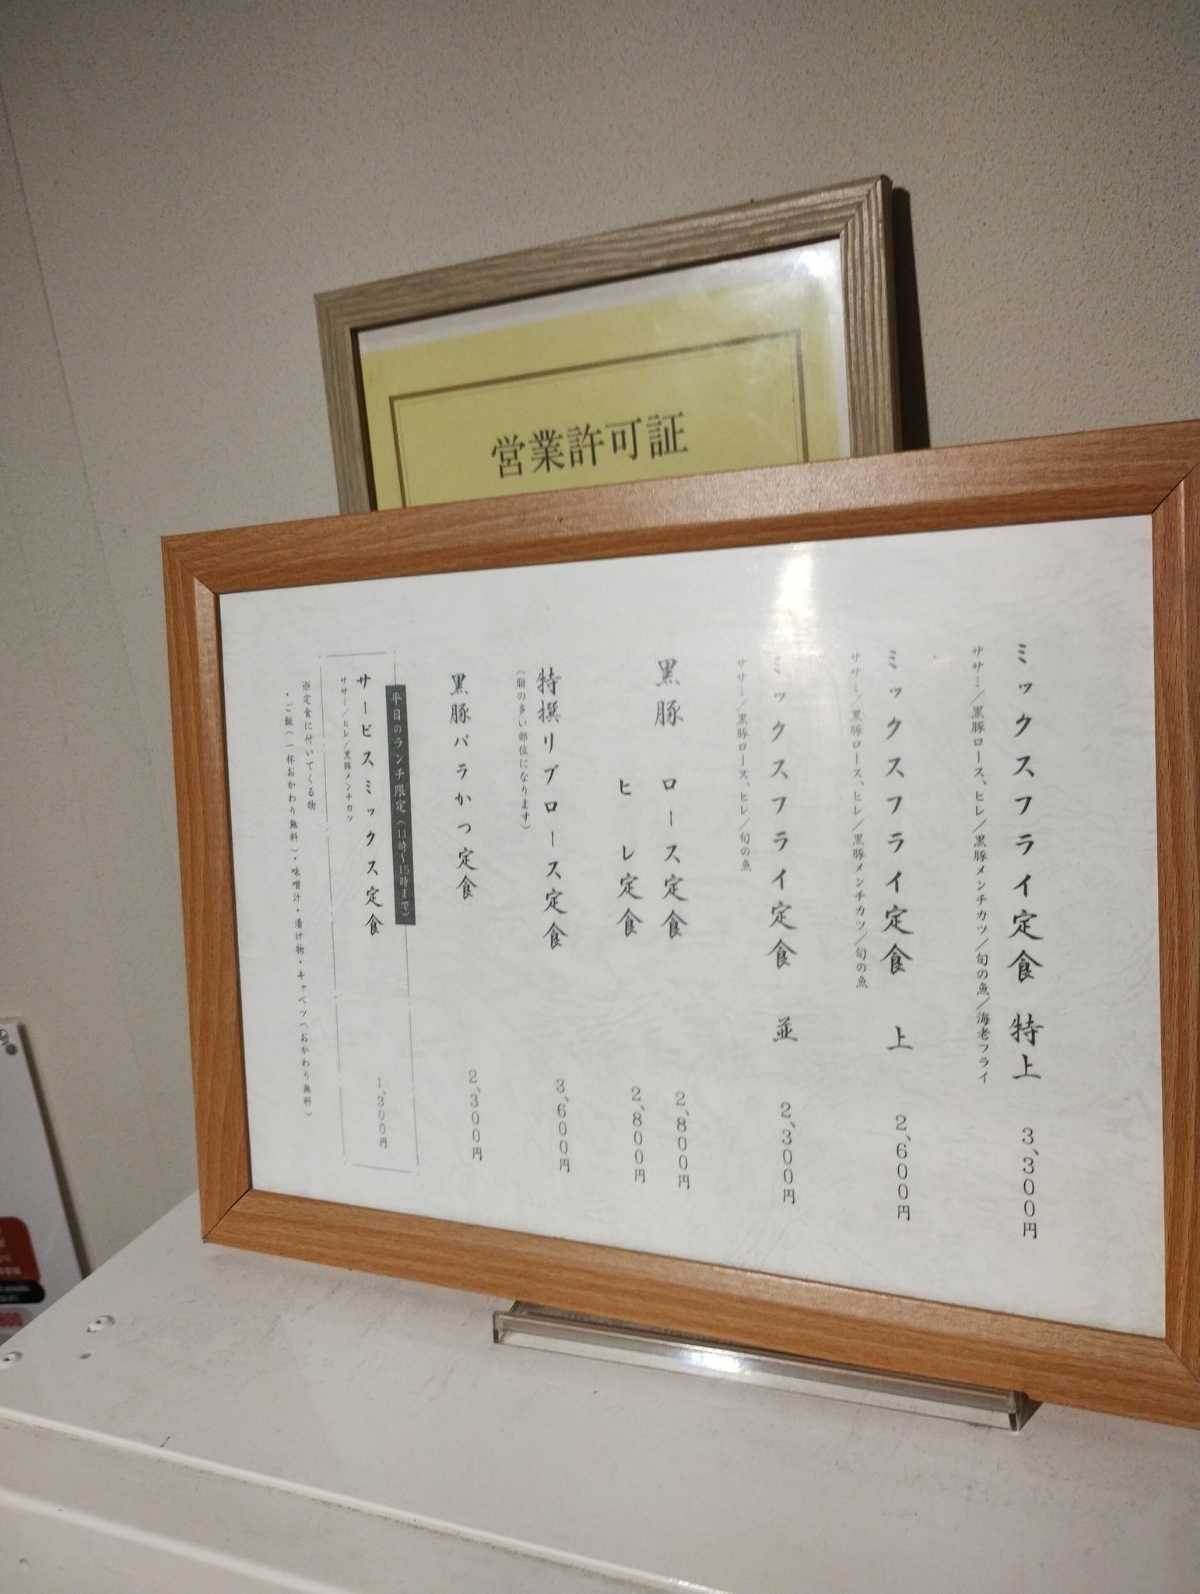 営業許可証
ミックスフライ定食 特上 3,300円
ササミ/黒豚ロース、ヒレ/黒豚メンチカツ/旬の魚/海老フライ
ミックスフライ定食 上 2,600円
ササミ/黒豚ロース、ヒレ/黒豚メンチカツ/旬の魚
ミックスフライ定食 並 2,300円
ササミ/黒豚ロース、ヒレ/旬の魚
黒豚 ロース定食 2,800円
ヒレ定食 2,800円
特撰リブロース定食 3,600円
(脂の多い部位になります)
黒豚バラかつ定食 2,300円
平日のランチ限定(11時〜15時まで)
サービスミックス定食 1,300円
ササミ/ヒレ/黒豚メンチカツ
※定食に付いてくる物
・ご飯(一杯おかわり無料)・味噌汁・漬け物・キャベツ(おかわり無料)